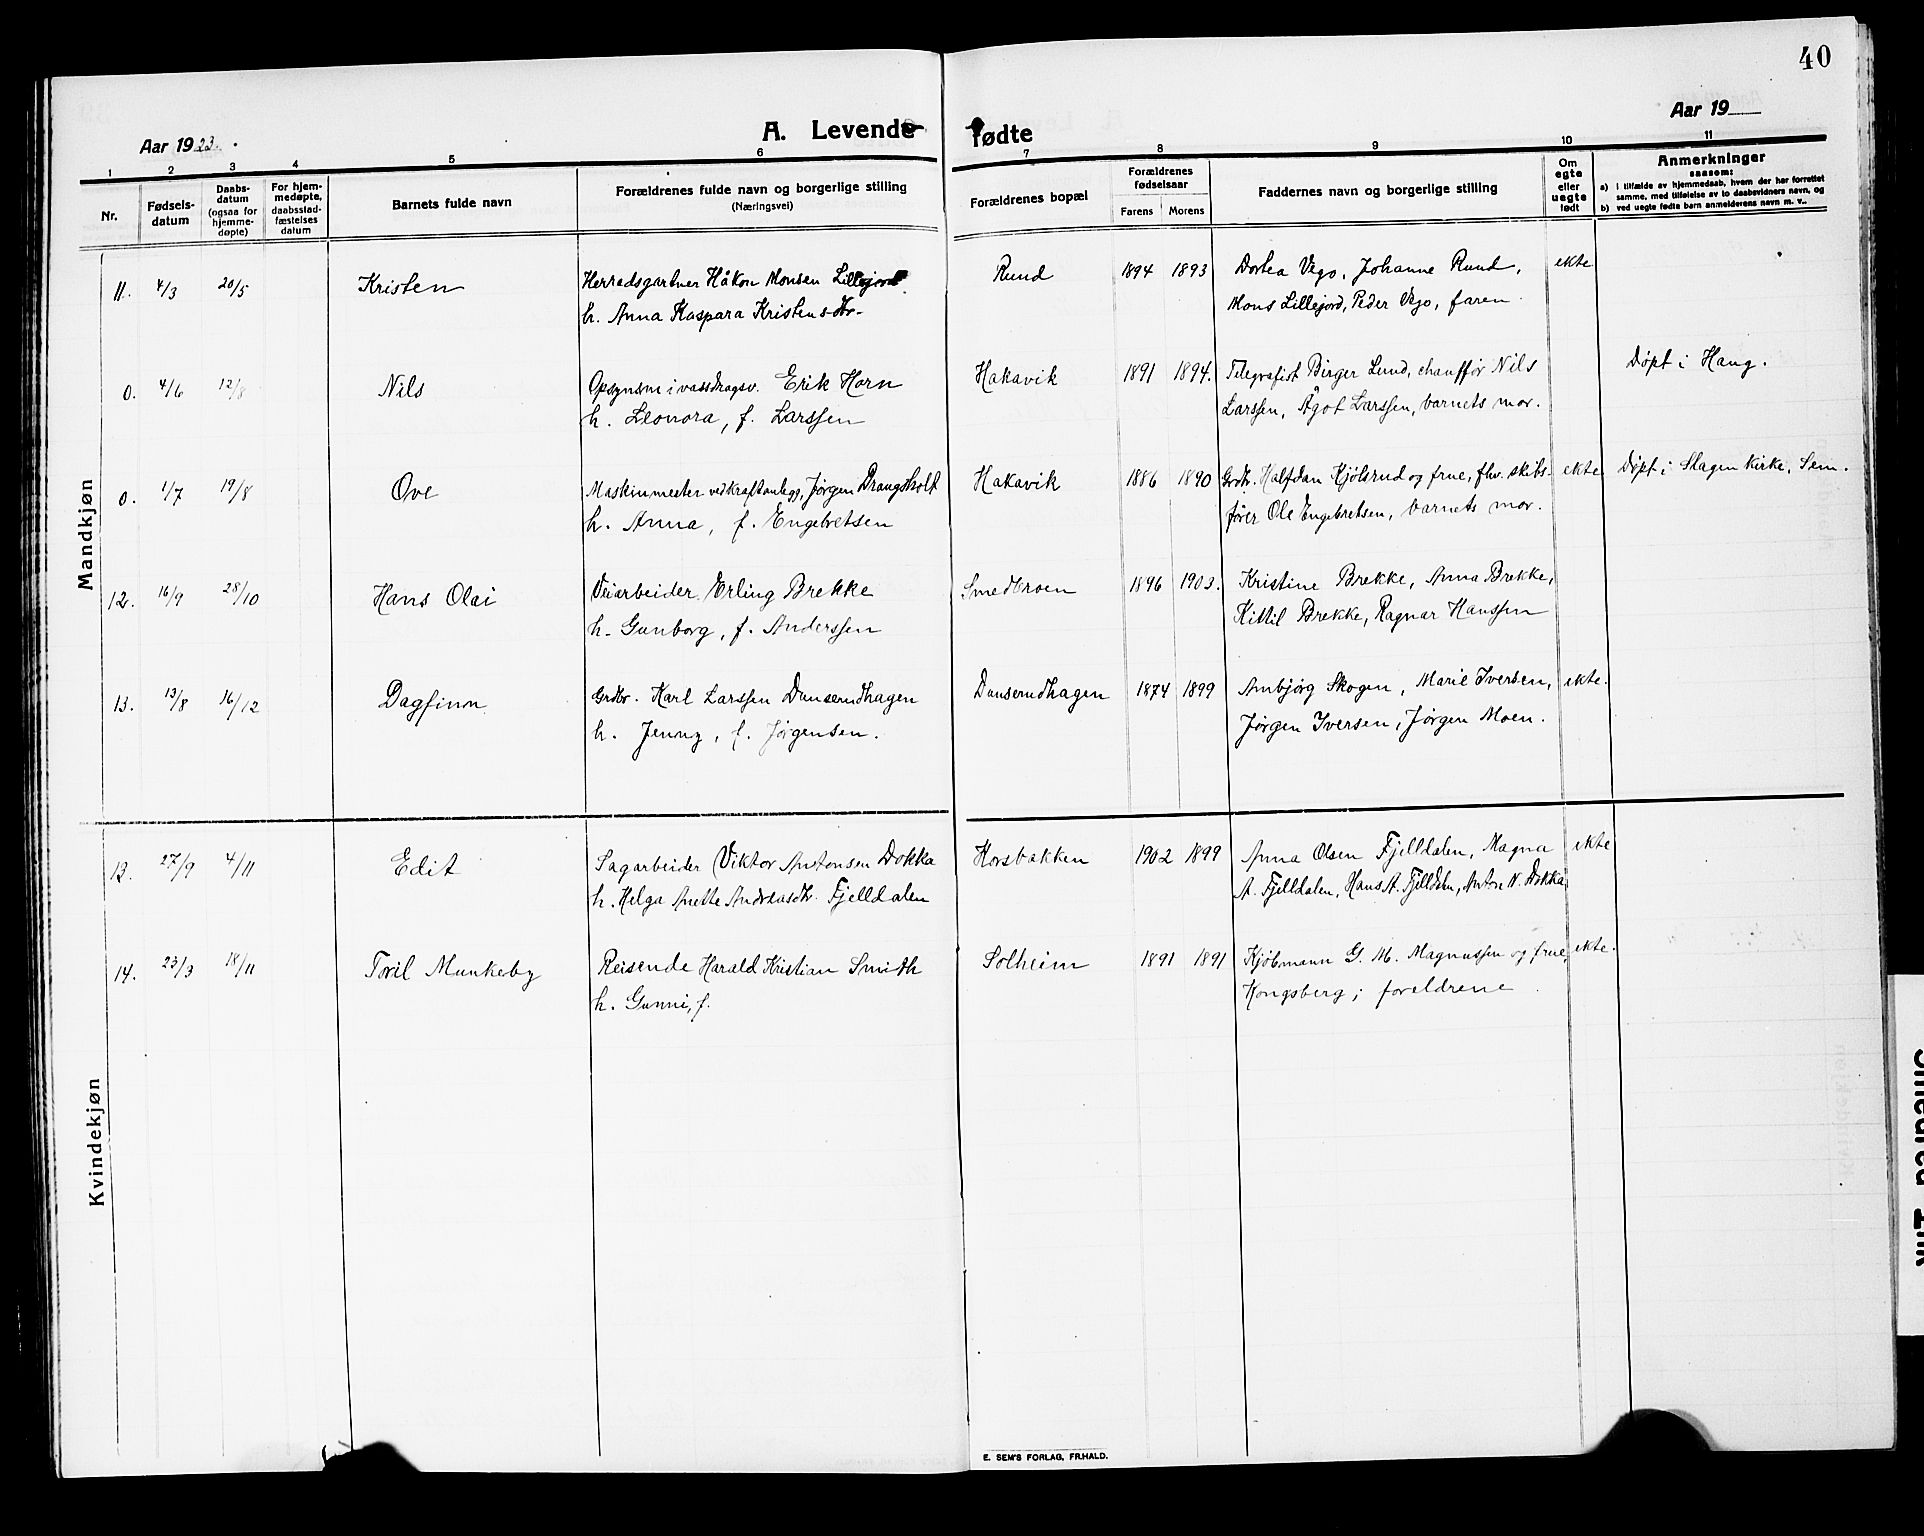 40
Aar 1923.
A. Levende fødte
Aar 19
1 2 3 4 5 6 7 8 9 10 11
Nr.
Fødsels-
datum
Daabs-
datum
(ogsaa for
hjemme-
døpte)
For hjem-
medøpte,
daabsstad-
fæstelses
datum
Barnets fulde navn
Forældrenes fulde navn og borgerlige stilling
(Næringsvei)
Forældrenes bopæl
Forældrenes
fødselsaar
Farens Morens
Faddernes navn og borgerlige stilling
Om
egte
eller
uegte
født
Anmerkninger
saasom:
a) i tilfælde av hjemmedaab, hvem der har forrettet
samme, med tilføielse av to daabsvidners navn, og
b) ved uegte fødte barn anmelderens navn m. v..
Mandkjøn
11. 4/3 20/5 Kristen Herredsgartner Håkon Monsen Lillejord Rund 1894 1893 Dortea Vego, Johanne Rund, ekte
h. Anna Kaspara Kristensdtr. Mons Lillejord, Peder Vego, faren.
0. 4/6 12/8 Nils Opsynsm i vassdragsv. Erik Horn Hakavik 1891 1894. Telegrafist Birger Lund, chauffør Nils Døpt i Haug.
h. Leonora, f. Larssen Larssen, Ågot Larssen, barnets mor.
0. 1/7 19/8 Ove Maskinmester ved kraftanlegg, Jørgen Drangsholt Hakavik 1886 1890 Grdbr. Halfdan Kjølsrud og frue, fhv. skibs- ekte Døpt i Slagen Kirke, Sem.
h. Anna, f. Engebretsen fører Ole Engebretsen, barnets mor.
12. 16/9 28/10 Hans Olai Veiarbeider Erling Brekke Smedbroen 1896 1903. Kristine Brekke, Anna Brekke,
h. Gunborg, f. Anderssen Kittil Brekke, Ragnar Hanssen
13. 13/8 16/12 Dagfinn Grdbr. Karl Larssen Dunserudhagen Dunserudhagen 1874 1899 Anbjørg Skogen, Marie Iversen, ekte.
h. Jenny, f. Jørgensen. Jørgen Iversen, Jørgen Moen.
Kvindekjøn
13. 27/9 4/11 Edit Sagarbeider Viktor Antonsen Dokka Horsbakken 1902 1899 Anna Olsen Fjelldalen, Magna ekte
h. Helga Anette Andreasdtr. Fjelldalen A. Fjelldalen, Hans A. Fjelldalen, Anton N. Dokka
14. 23/3 18/11 Toril Munkeby Reisende Harald Kristian Smith Solheim 1891 1891 Kjøbmann G. M. Magnussen og frue, ekte.
h. Gunni, f. Kongsberg; foreldrene.
E. SEM'S FORLAG, FR.HALD.